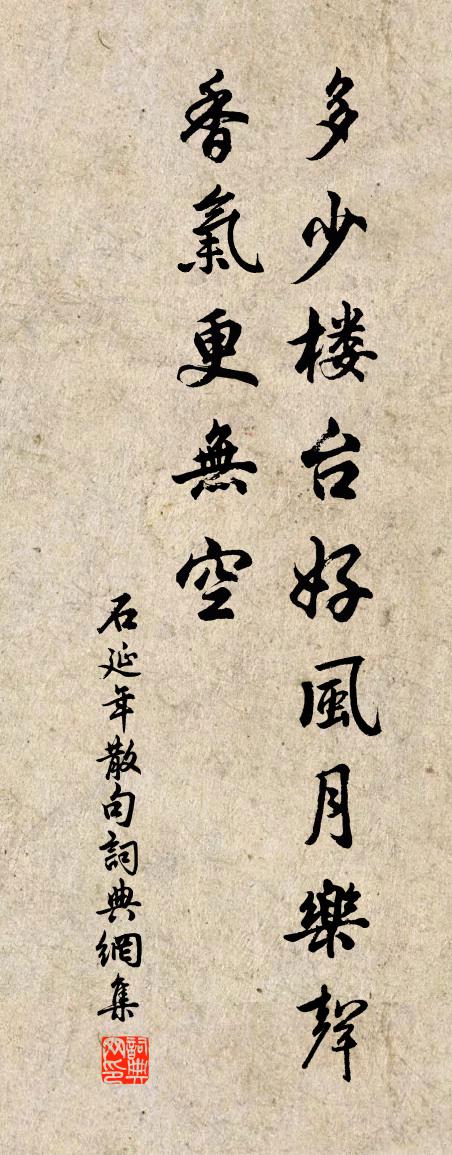 多少楼台好風月樂聲
香氣更無空
石延年散句詞典網集
詞典网印